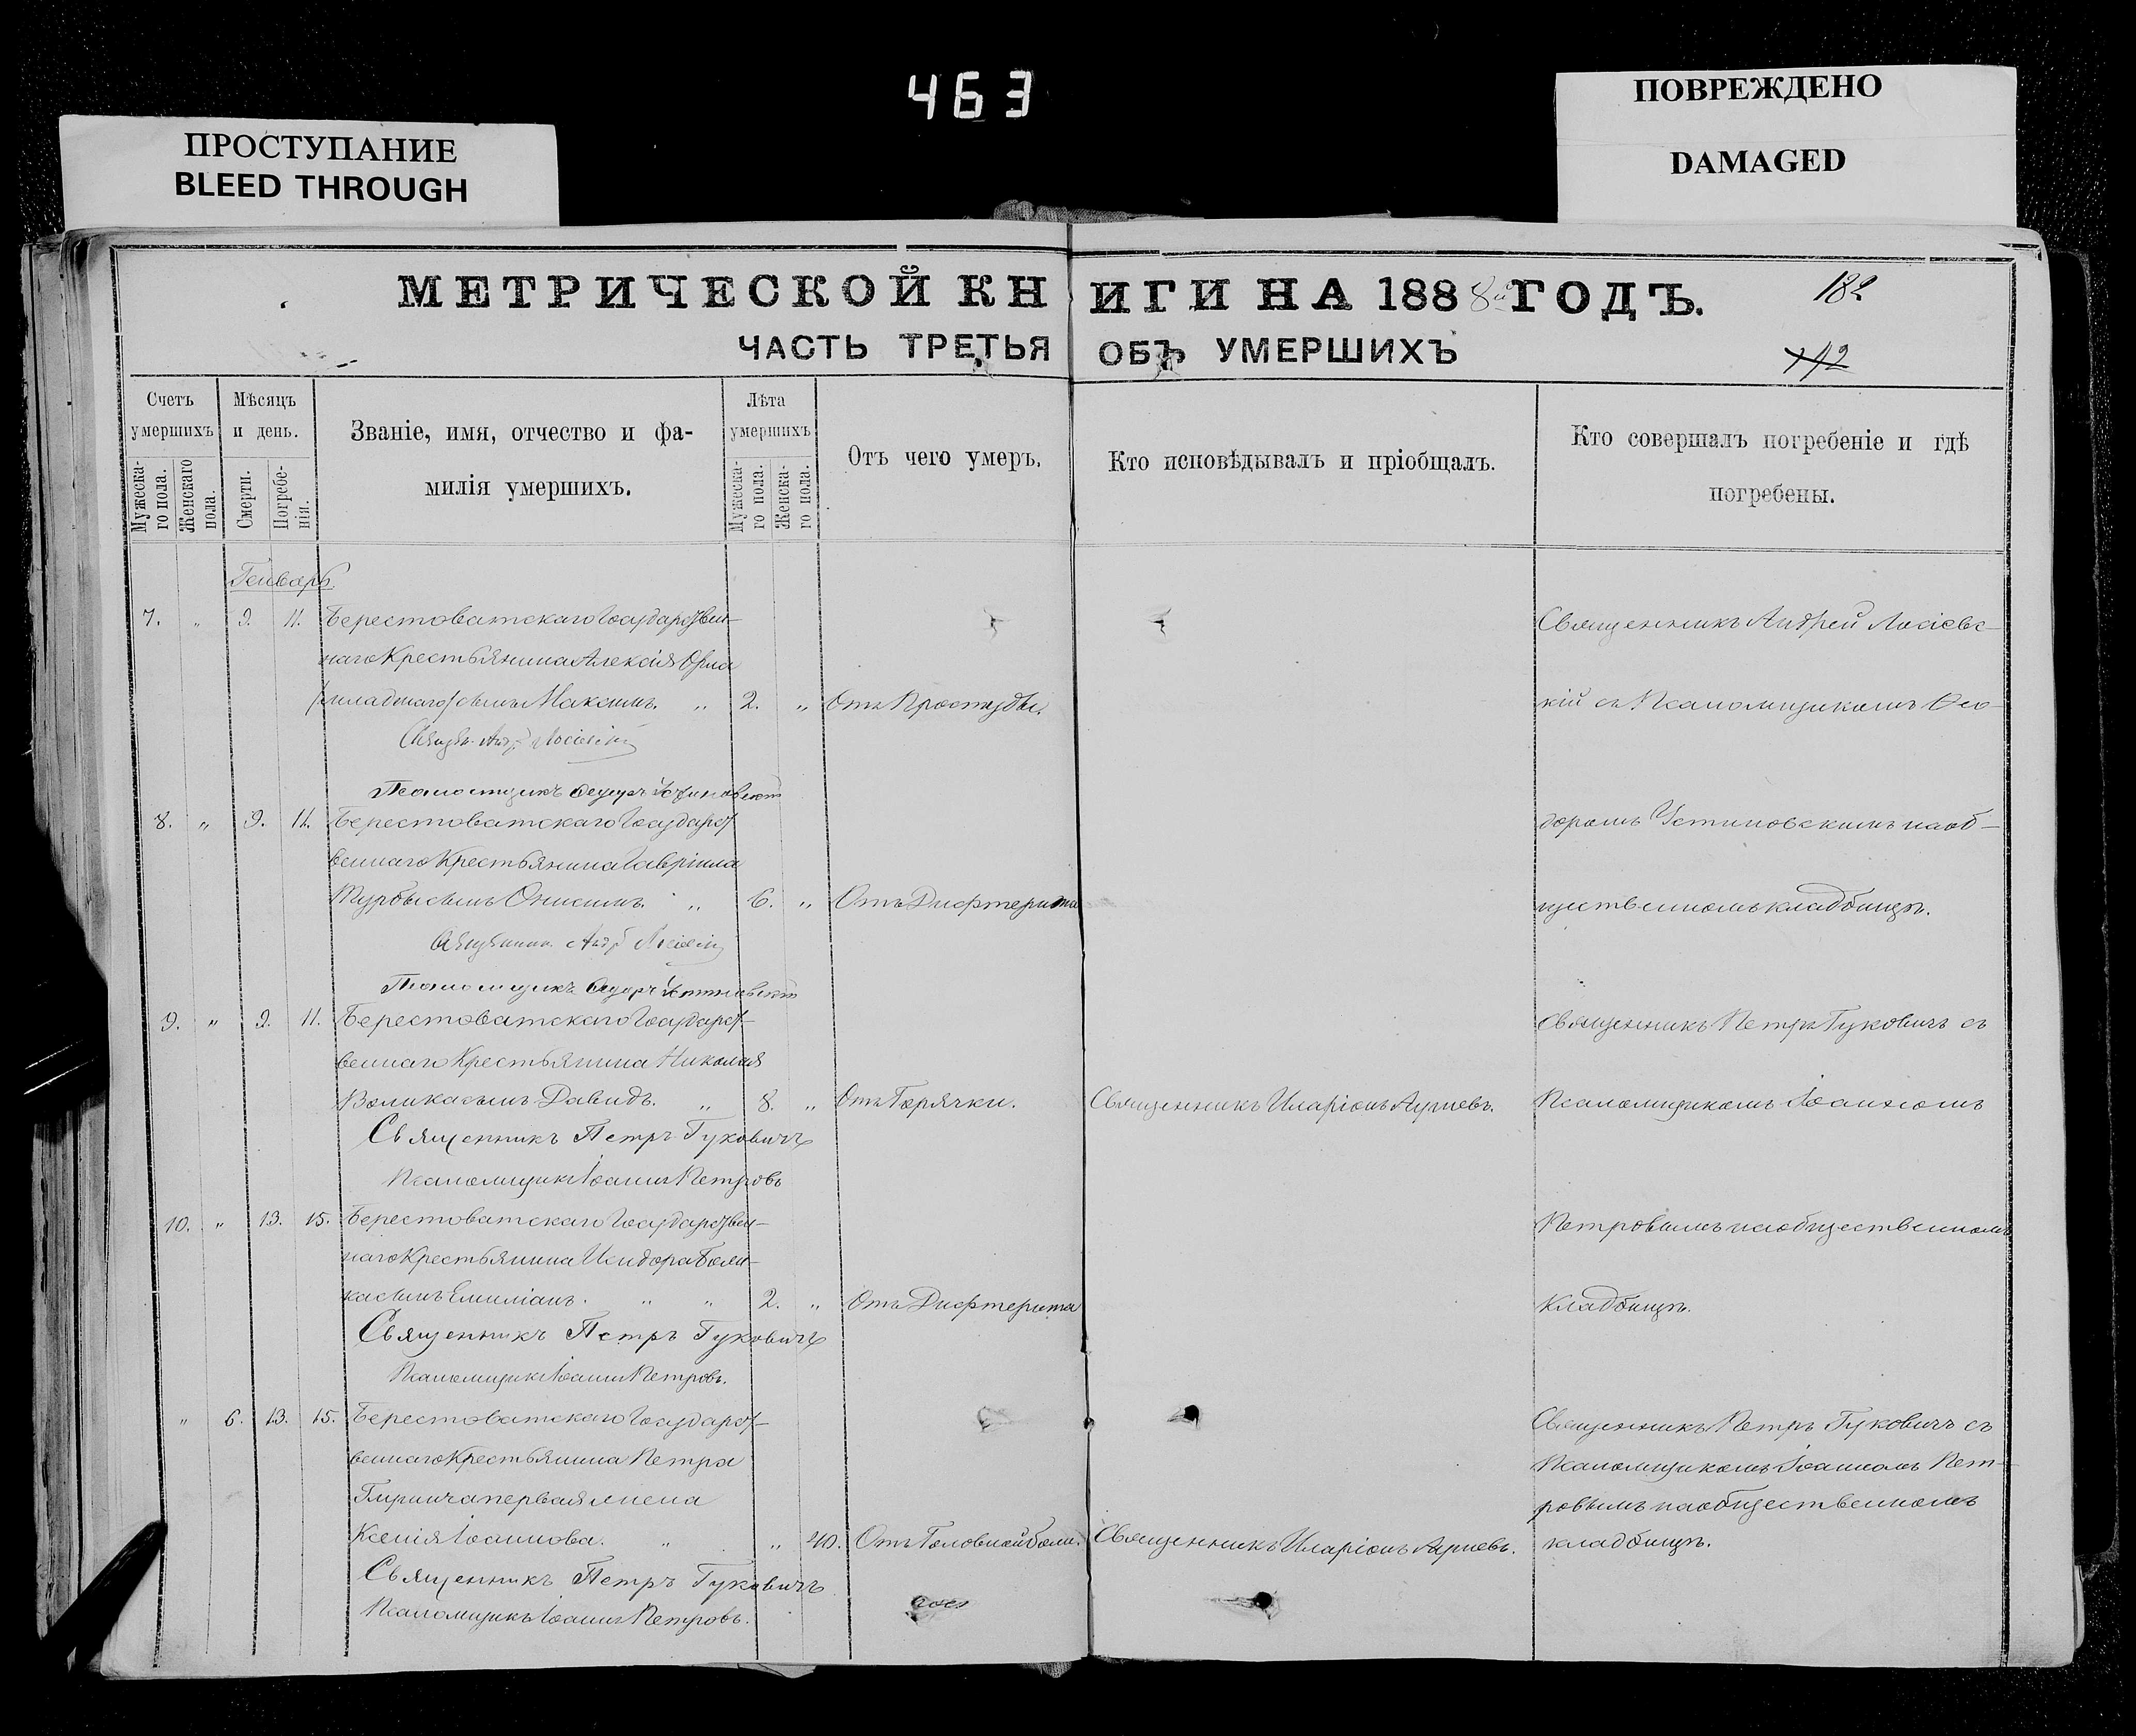 463
ПРОСТУПАНИЕ
BLEED THROUGH
ПОВРЕЖДЕНО
DAMAGED
МЕТРИЧЕСКОЙ КНИГИ НА 1888й ГОДЪ.
182
ЧАСТЬ ТРЕТЬЯ ОБЪ УМЕРШИХЪ
Счетъ умершихъ
Мужеска-го пола.
Женскаго пола.
Мѣсяцъ и день.
Смерти.
Погребе-нія.
Званіе, имя, отчество и фа-
милія умершихъ.
Лѣта умершихъ
Мужеска-го пола.
Женска-го пола.
Отъ чего умеръ.
Кто исповѣдывалъ и пріобщалъ.
Кто совершалъ погребеніе и гдѣ
погребены.
Генварь.
7. „ 9. 11. Берестоватскаго Государствен-
наго Крестьянина Алексія Орла
(младшаго) сынъ Максимъ. „ 2. „ Отъ Простуды.
Андр.
Псаломщикъ Ѳедоръ Устиновскій
Священникъ Андрей Лосіевс-
кій съ Псаломщикомъ Ѳео-
доромъ Устиновскимъ на об-
щественномъ кладбищѣ.
8. „ 9. 11. Берестоватскаго Государст-
веннаго Крестьянина Гавріила
Турбы сынъ Онисимъ. „ 6. „ Отъ Дифтерита
Псаломщикъ Ѳедоръ Устиновскій
9. „ 9. 11. Берестоватскаго Государст-
веннаго Крестьянина Николая
сынъ Давидъ. „ 8. „ Отъ Горячки.
Священникъ Иларіонъ
Священникъ Петръ Гуковичъ
Псаломщикъ Іоаннъ Петровъ
Священникъ Петръ Гуковичъ съ
Псаломщикомъ Іоанномъ
Петровымъ на общественномъ
кладбищѣ.
10. „ 13. 15. Берестоватскаго Государствен-
наго Крестьянина Исидора
сынъ Емиліанъ. „ „ 2. „ Отъ Дифтерита
Священникъ Петръ Гуковичъ
Псаломщикъ Іоаннъ Петровъ.
„ 6. 13. 15. Берестоватскаго Государст-
веннаго Крестьянина Петра
первая жена
Ксенія Іоаннова. „ „ 40. Отъ Головной боли.
Священникъ Иларіонъ
Священникъ Петръ Гуковичъ
Псаломщикъ Іоаннъ Петровъ.
Священникъ Петръ Гуковичъ съ
Псаломщикомъ Іоанномъ Пет-
ровымъ на общественномъ
кладбищѣ.